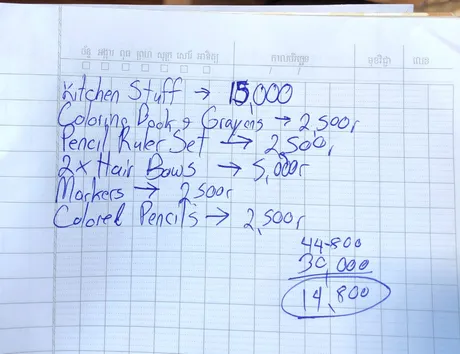 ច័ន្ទ អង្គារ ពុធ ព្រហ សុក្រ សៅរ៍ អាទិត្យ
កាលបរិច្ឆេទ
Kitchen Stuff → 15,000
Coloring Book & Crayons → 2,500r
Pencil Ruler Set → 2,500r
2x Hair Bows → 5,000r
Markers → 2500r
Colored Pencils → 2,500r
44-800
30,000
14,800